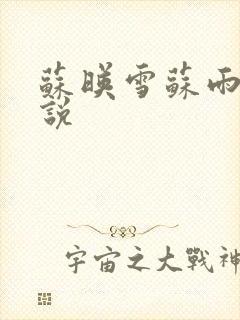 蘇暎雪蘇雨
說
宇宙之大戰神